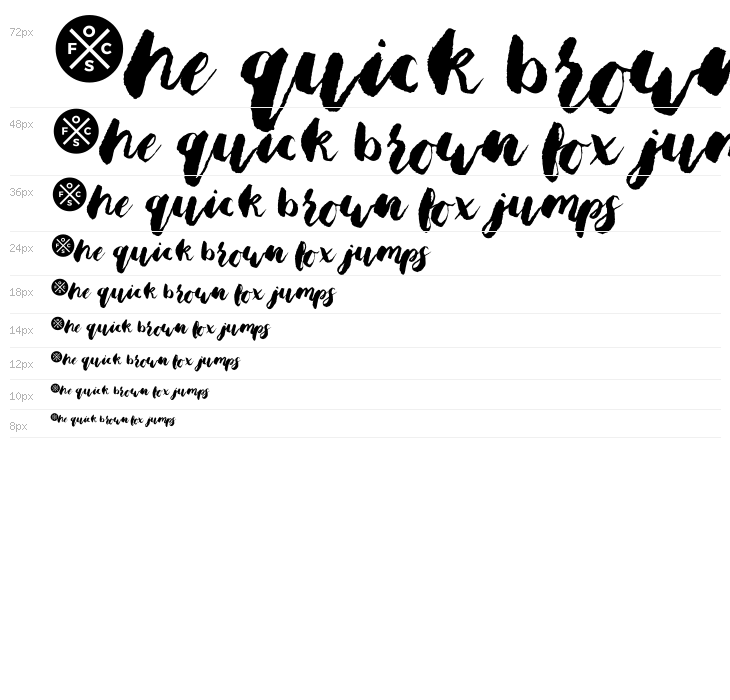 72px OFCS he quick brown
48px OFCS he quick brown fox jum
36px OFCS he quick brown fox jumps
24px OFCS he quick brown fox jumps
18px OFCS he quick brown fox jumps
14px he quick brown fox jumps
12px he quick brown fox jumps
10px he quick brown fox jumps
8px he quick brown fox jumps